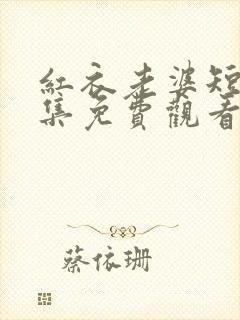 紅衣老婆短
集免費觀看
蔡依珊